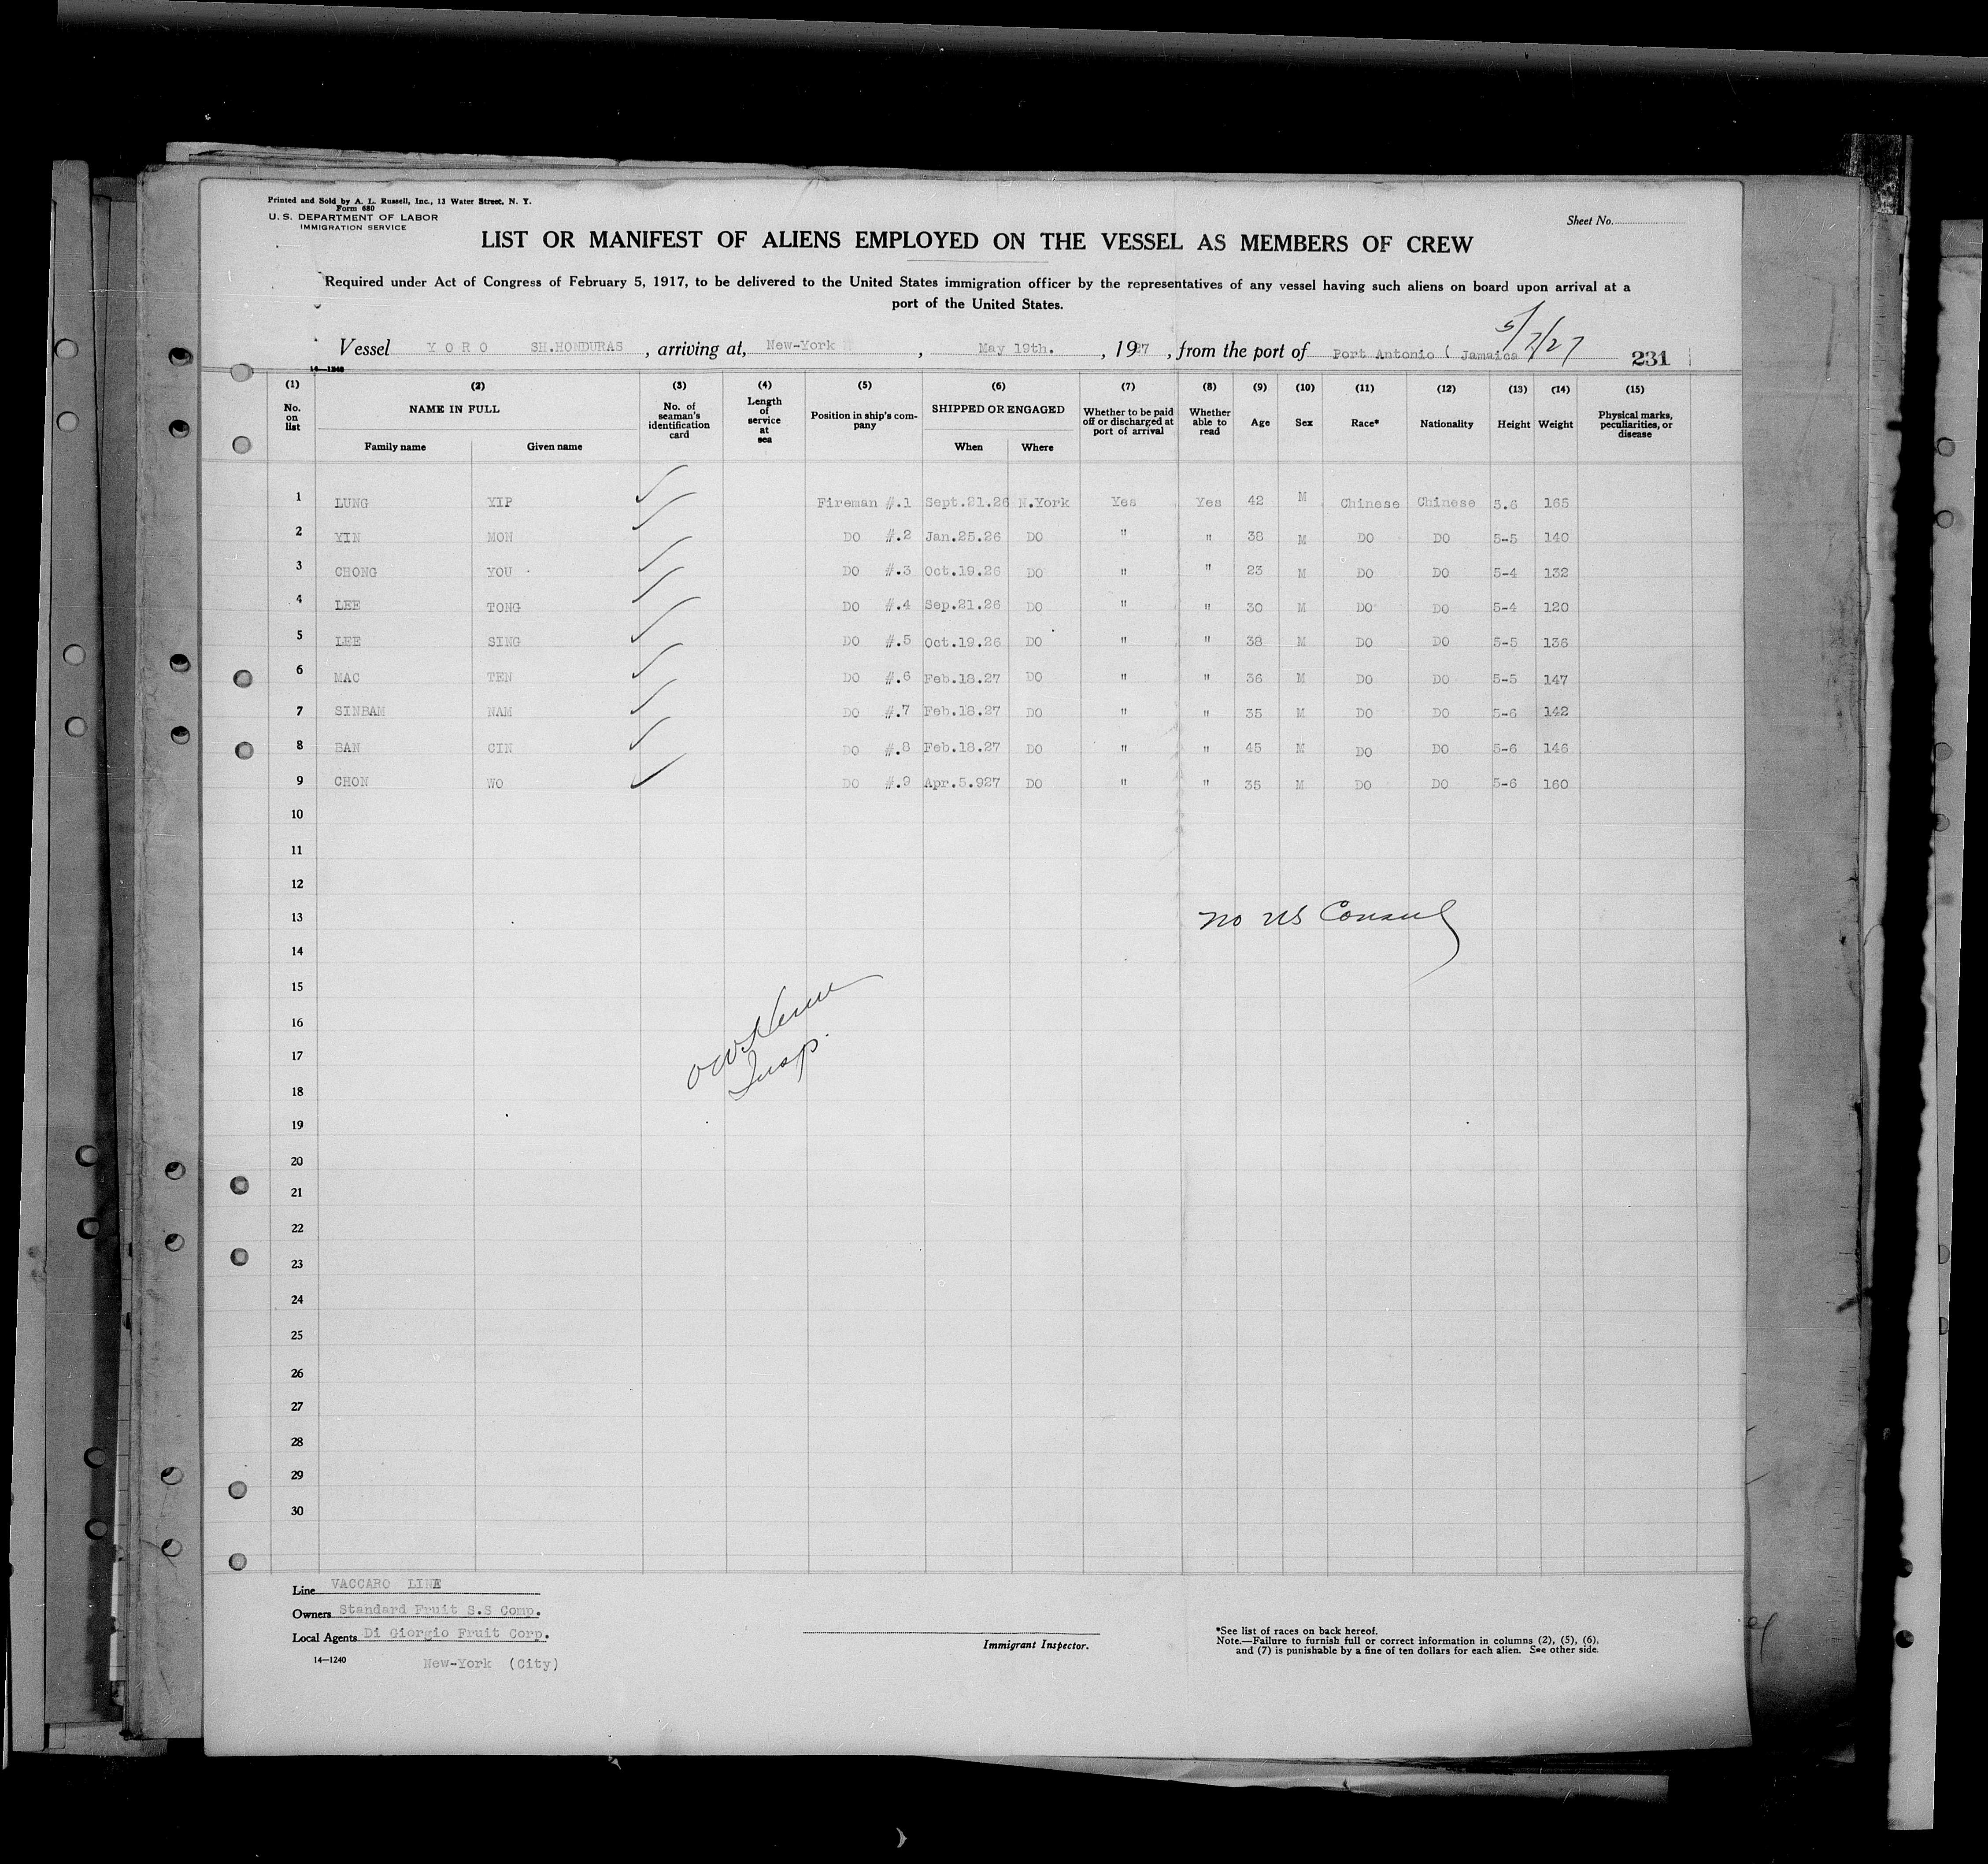 Printed and Sold by A. L. Russell, Inc., 13 Water Street, N. Y.
Form 680
U. S. DEPARTMENT OF LABOR
IMMIGRATION SERVICE
Sheet No.
LIST OR MANIFEST OF ALIENS EMPLOYED ON THE VESSEL AS MEMBERS OF CREW
Required under Act of Congress of February 5, 1917, to be delivered to the United States immigration officer by the representatives of any vessel having such aliens on board upon arrival at a
port of the United States.
5/7/27
Vessel Y O R O SH.HONDURAS , arriving at, New-York , May 19th. , 1927 , from the port of Port Antonio ( Jamaica 231
14—1240
(1) (2) (3) (4) (5) (6) (7) (8) (9) (10) (11) (12) (13) (14) (15)
No. on list NAME IN FULL Family name Given name No. of seaman's identification card Length of service at sea Position in ship's company SHIPPED OR ENGAGED When Where Whether to be paid off or discharged at port of arrival Whether able to read Age Sex Race* Nationality Height Weight Physical marks, peculiarities, or disease
1 LUNG YIP Fireman #.1 Sept.21.26 N.York Yes Yes 42 M Chinese Chinese 5.6 165
2 YIN MON DO #.2 Jan.25.26 DO " " 38 M DO DO 5-5 140
3 CHONG YOU DO #.3 Oct.19.26 DO " " 23 M DO DO 5-4 132
4 LEE TONG DO #.4 Sep.21.26 DO " " 30 M DO DO 5-4 120
5 LEE SING DO #.5 Oct.19.26 DO " " 38 M DO DO 5-5 136
6 MAC TEN DO #.6 Feb.18.27 DO " " 36 M DO DO 5-5 147
7 SINBAM NAM DO #.7 Feb.18.27 DO " " 35 M DO DO 5-6 142
8 BAN CIN DO #.8 Feb.18.27 DO " " 45 M DO DO 5-6 146
9 CHON WO DO #.9 Apr.5.927 DO " " 35 M DO DO 5-6 160
10
11
12
13 no US Consul
14
15
16
17 Insp.
18
19
20
21
22
23
24
25
26
27
28
29
30
Line VACCARO LINE
Owners Standard Fruit S.S Comp.
Local Agents Di Giorgio Fruit Corp.
14—1240 New-York (City)
Immigrant Inspector.
*See list of races on back hereof.
Note.—Failure to furnish full or correct information in columns (2), (5), (6),
and (7) is punishable by a fine of ten dollars for each alien. See other side.